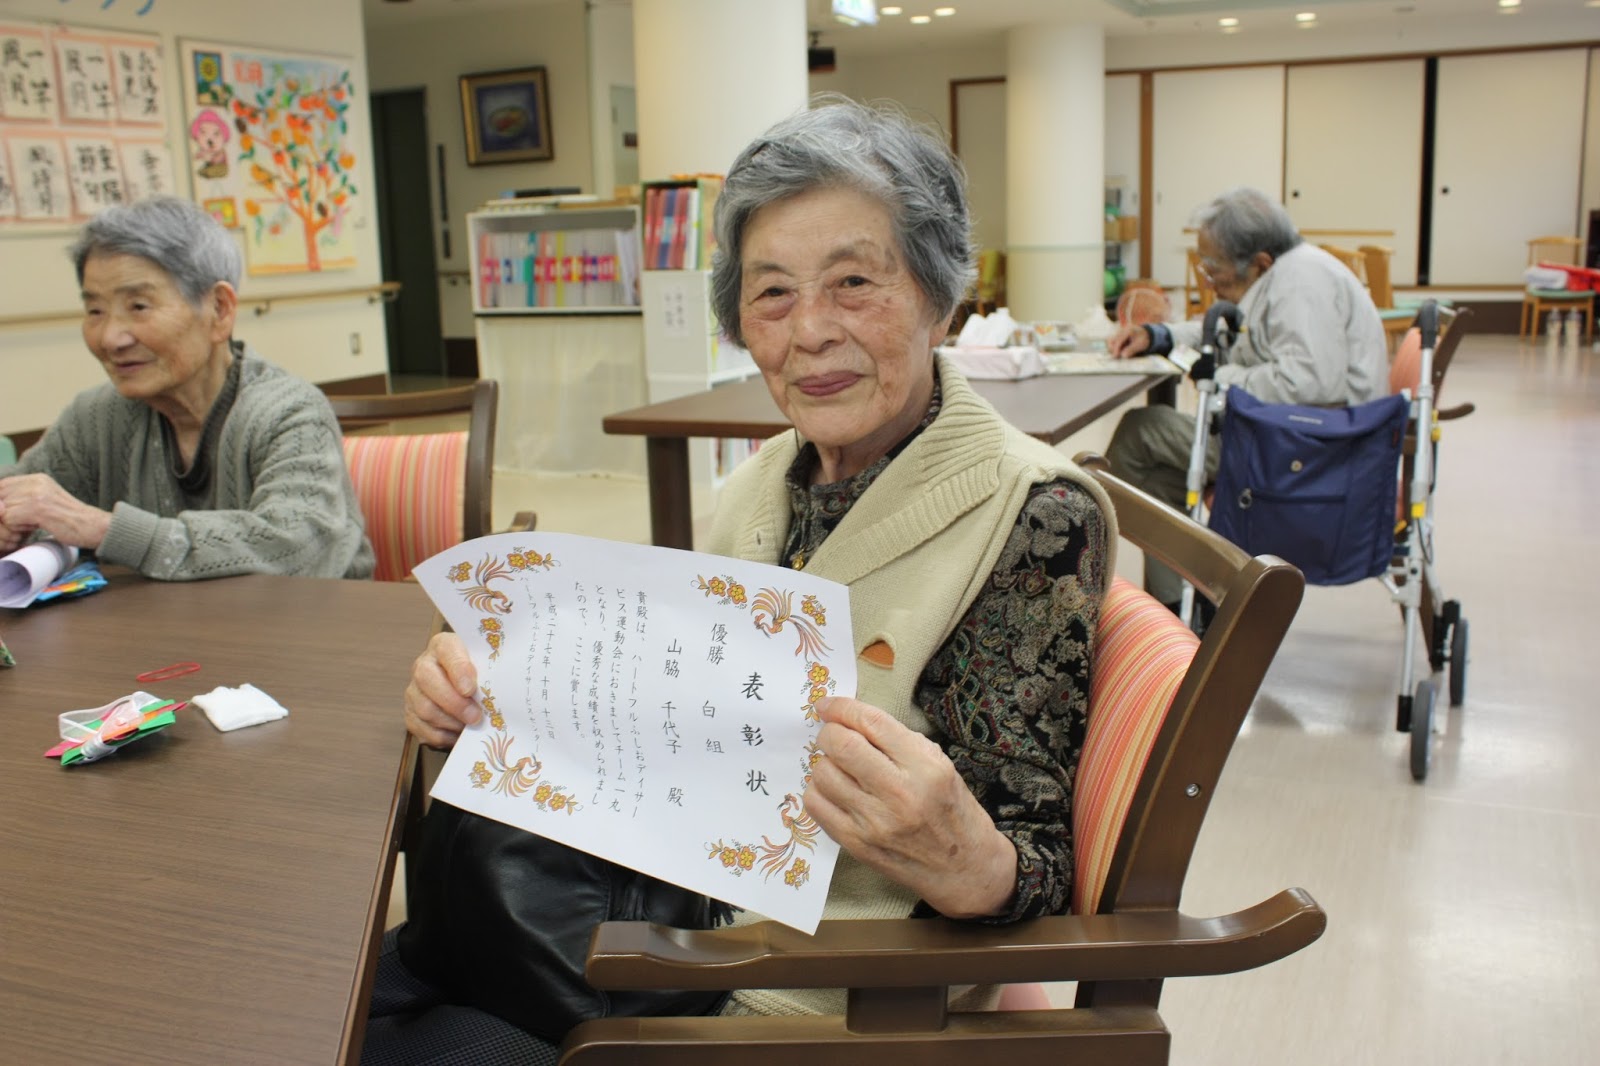 表彰状
優勝 白組
山脇 千代子 殿
貴殿は、ハートフルふしおデイサー
ビス運動会におきましてチーム一丸
となり、優秀な成績を収められまし
たので、ここに賞します。
平成二十七年 十月 十三日
ハートフルふしおデイサービスセンター
一竿
風月
一竿
風月